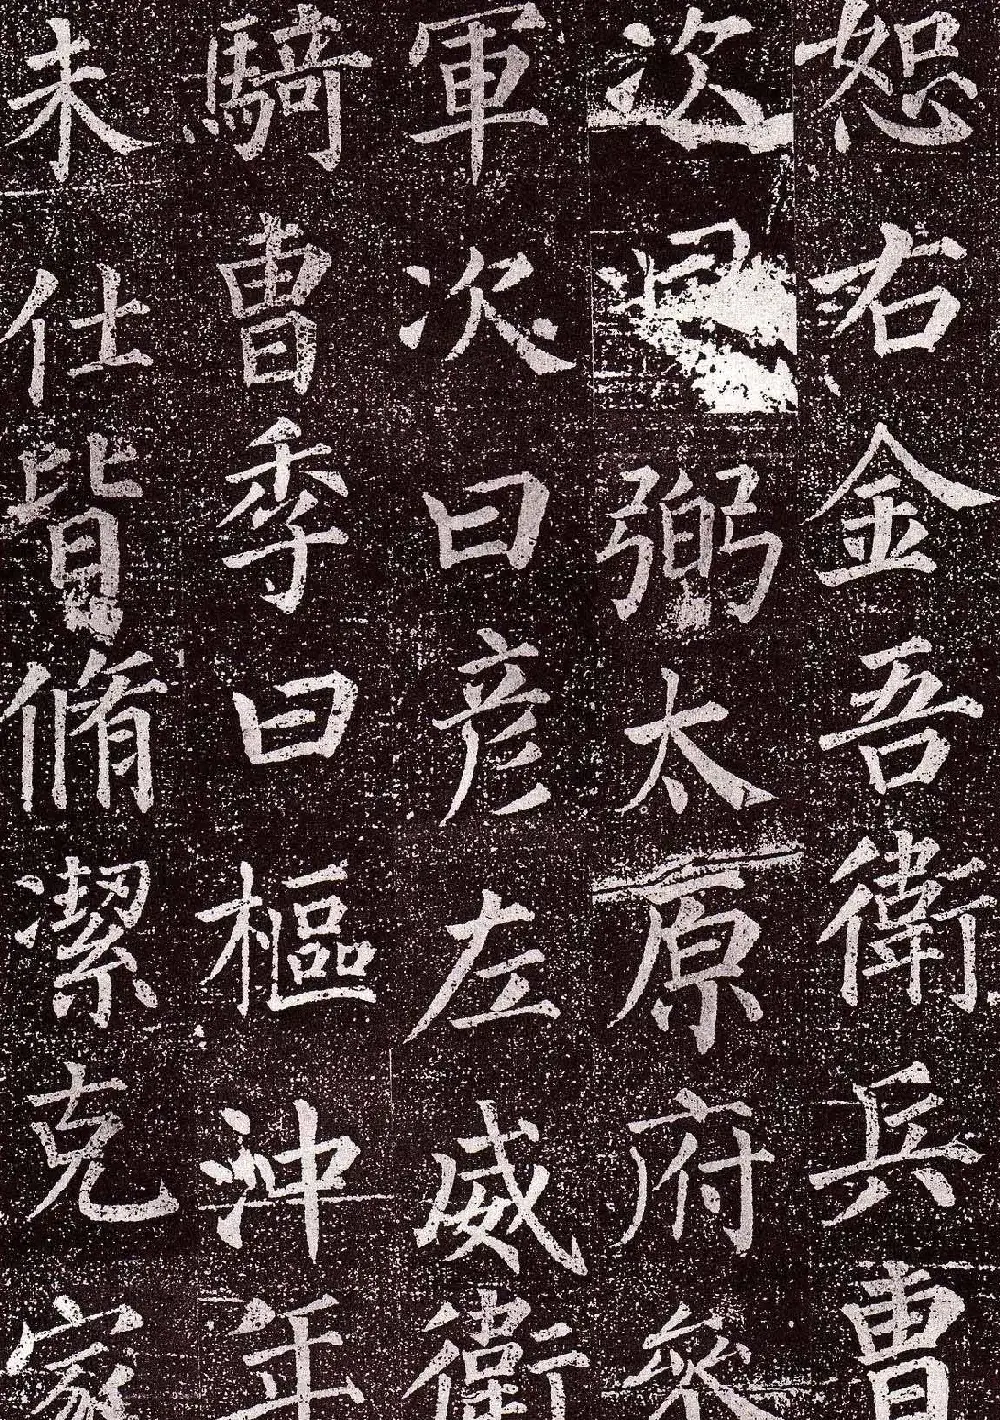 恕右金吾衛兵曹
次弼太原府參
軍次曰彥左威衛
騎曹季曰樞沖年
未仕皆脩潔克家